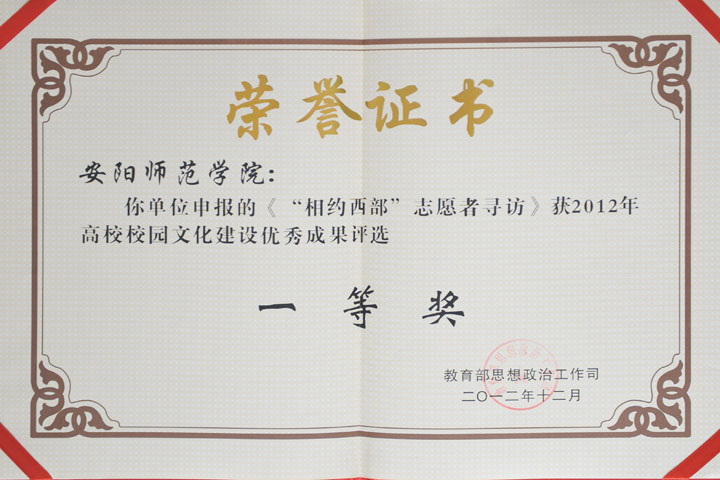 荣誉证书
安阳师范学院：
你单位申报的《“相约西部”志愿者寻访》获2012年
高校校园文化建设优秀成果评选
一等奖
教育部思想政治工作司
二〇一二年十二月